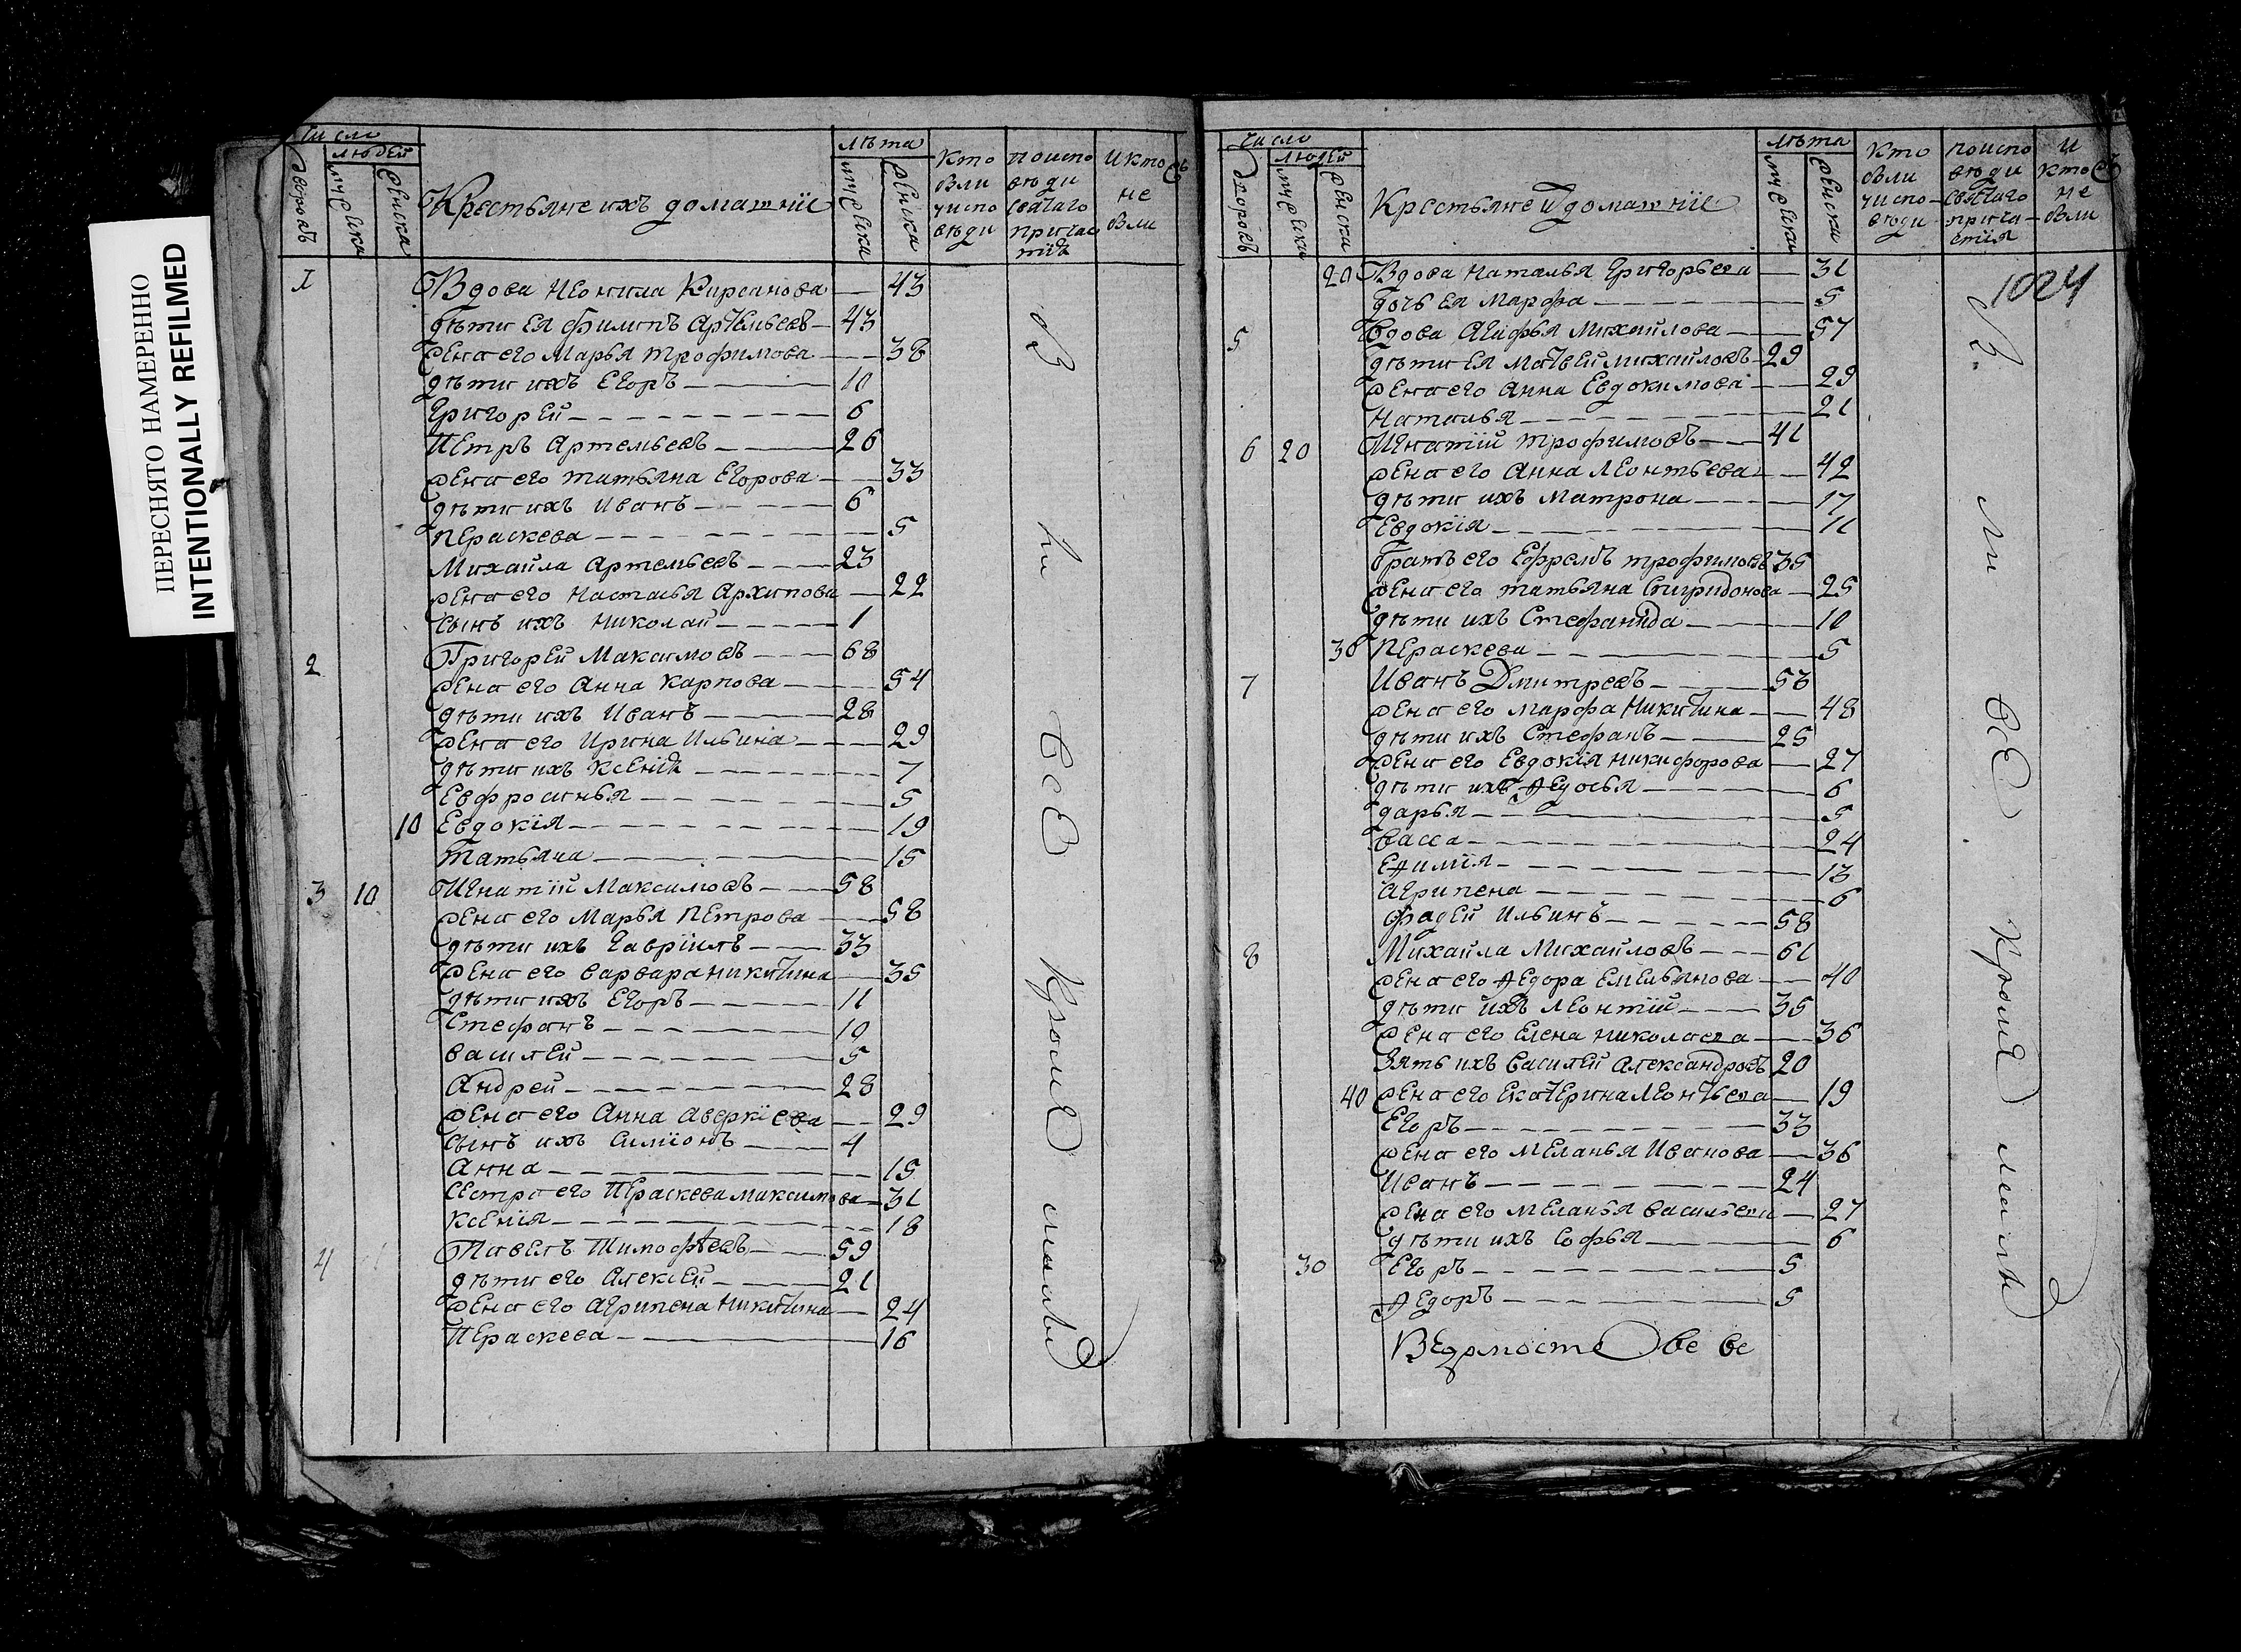 ПЕРЕСНЯТО НАМЕРЕННО
INTENTIONALLY REFILMED
число
людей
дворовъ
мужеска
женска
Крестьяне ихъ домашніе
лѣта
мужеска
женска
кто были у исповѣди
по исповѣди святаго причастія
и кто не были
1 Вдова Неонила Кирсанова — 43
дѣти ея Филипъ Артемьевъ — 43
жена его Марья Трофимова — 38
дѣти ихъ Егоръ — 10
Григорей — 6
Петръ Артемьевъ — 26
жена его Татьяна Егорова — 33
дѣти ихъ Иванъ — 6
Пераскева — 5
Михайла Артемьевъ — 23
жена его Настасья Архипова — 22
сынъ ихъ Николай — 1
2 Григорей Максимовъ — 68
жена его Анна Карпова — 54
дѣти ихъ Иванъ — 28
жена его Ирина Ильина — 29
дѣти ихъ Ксенія — 7
Евфросинья — 5
10 Евдокія — 19
Татьяна — 15
3 10 Игнатій Максимовъ — 58
жена его Марья Петрова — 58
дѣти ихъ Гавріилъ — 33
жена его Варвара Никитина — 35
дѣти ихъ Егоръ — 11
Стефанъ — 10
Василей — 5
Андрей — 28
жена его Анна Аверкіева — 29
сынъ ихъ Симіонъ — 4
Анна — 15
Сестра его Пераскева Максимова — 31
Ксенія — 18
4 Павелъ Тимофѣевъ — 59
дѣти его Алексѣй — 21
жена его Агрипена Никитина — 24
Пераскева — 16
Были всѣ кроме
число
людей
дворовъ
мужеска
женска
Крестьяне и домашніе
лѣта
мужеска
женска
кто были у исповѣди
по исповѣди святаго причастія
и кто не были
1024
20 Вдова Наталья Григорьева — 31
дочь ея Марфа — 5
5 Вдова Агафья Михайлова — 57
дѣти ея Матвей Михайловъ — 29
жена его Анна Евдокимова — 29
Наталья — 21
6 20 Игнатій Трофимовъ — 41
жена его Анна Леонтьева — 42
дѣти ихъ Матрона — 17
Евдокія — 11
Братъ его Ефремъ Трофимовъ 35
жена его Татьяна Спиридонова — 25
дѣти ихъ Стефанида — 10
30 Пераскева — 5
7 Иванъ Дмитревъ — 53
жена его Марфа Никитина — 48
дѣти ихъ Стефанъ — 25
жена его Евдокія Никифорова — 27
дѣти ихъ Ѳедосья — 6
Дарья — 5
Васса — 24
Еѳимія — 13
Агрипена — 6
Фадей Ильинъ — 58
8 Михайла Михайловъ — 61
жена его Ѳедора Емельянова — 40
дѣти ихъ Леонтій — 35
жена его Елена Николаева — 36
Зять ихъ Василей Александровъ 20
40 жена его Екатерина Леонтьева — 19
Егоръ — 33
жена его Меланья Иванова — 36
Иванъ — 24
жена его Меланья Васильева — 27
дѣти ихъ Софья — 6
30 Егоръ — 5
Ѳедоръ — 5
Были всѣ кроме